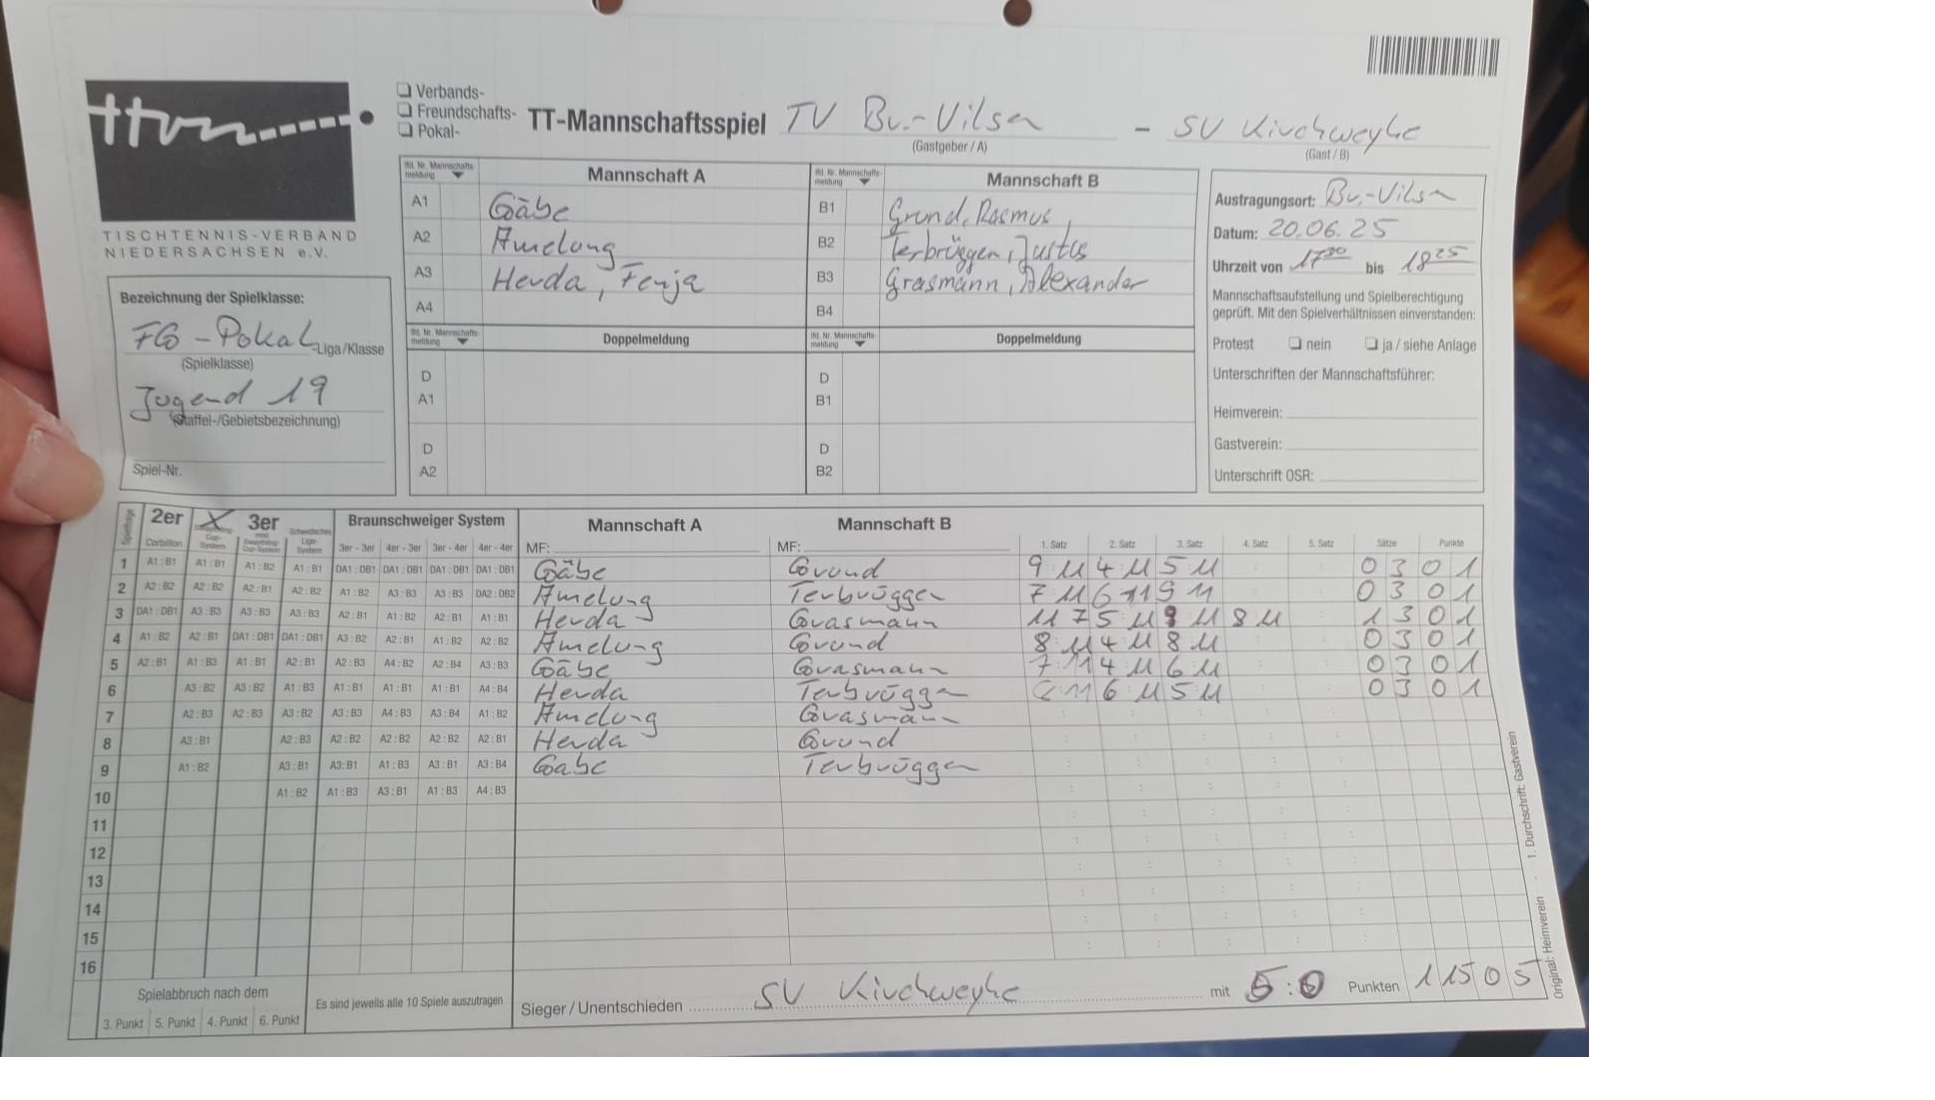 ttvn
TISCHTENNIS-VERBAND
NIEDERSACHSEN e.V.
❑ Verbands-
❑ Freundschafts-
❑ Pokal-
TT-Mannschaftsspiel TV Br.-Vilsen - SV Kirchweyhe
(Gastgeber / A) (Gast / B)
Bezeichnung der Spielklasse:
FG-Pokal -Liga/Klasse
(Spielklasse)
Jugend 19
(Staffel-/Gebietsbezeichnung)
Spiel-Nr.
lfd. Nr. Mannschafts-meldung Mannschaft A lfd. Nr. Mannschafts-meldung Mannschaft B
A1 Gäbe B1 Grund, Rasmus
A2 Amelung B2 Terbrüggen, Justus
A3 Herda, Fenja B3 Grasmann, Alexander
A4 B4
lfd. Nr. Mannschafts-meldung Doppelmeldung lfd. Nr. Mannschafts-meldung Doppelmeldung
D A1 D B1
D A2 D B2
Austragungsort: Br.-Vilsen
Datum: 20.06.25
Uhrzeit von 17 bis 18 25
Mannschaftsaufstellung und Spielberechtigung
geprüft. Mit den Spielverhältnissen einverstanden:
Protest ❑ nein ❑ ja / siehe Anlage
Unterschriften der Mannschaftsführer:
Heimverein:
Gastverein:
Unterschrift OSR:
Spielfolge 2er X 3er Braunschweiger System Mannschaft A Mannschaft B
Corbillon 3er - 3er 4er - 3er 3er - 4er 4er - 4er MF: MF: 1. Satz 2. Satz 3. Satz 4. Satz 5. Satz Sätze Punkte
1 A1 : B1 A1 : B1 A1 : B2 A1 : B1 DA1 : DB1 DA1 : DB1 DA1 : DB1 DA1 : DB1 Gäbe Grund 9 : 11 4 : 11 5 : 11 0 3 0 1
2 A2 : B2 A2 : B2 A2 : B1 A2 : B2 A1 : B2 A3 : B3 A3 : B3 DA2 : DB2 Amelung Terbrüggen 7 : 11 6 11 9 11 0 3 0 1
3 DA1 : DB1 A3 : B3 A3 : B3 A3 : B3 A2 : B1 A1 : B2 A2 : B1 A1 : B1 Herda Grasmann 11 7 5 11 9 11 8 11 1 3 0 1
4 A1 : B2 A2 : B1 DA1 : DB1 DA1 : DB1 A3 : B2 A2 : B1 A1 : B2 A2 : B2 Amelung Grund 8 : 11 4 11 8 11 0 3 0 1
5 A2 : B1 A1 : B3 A1 : B1 A2 : B1 A2 : B3 A4 : B2 A2 : B4 A3 : B3 Gäbe Grasmann 7 : 11 4 11 6 11 0 3 0 1
6 A3 : B2 A3 : B2 A1 : B3 A1 : B1 A1 : B1 A1 : B1 A4 : B4 Herda Terbrüggen 11 6 11 5 11 0 3 0 1
7 A2 : B3 A2 : B3 A3 : B2 A3 : B3 A4 : B3 A3 : B4 A1 : B2 Amelung Grasmann
8 A3 : B1 A2 : B3 A2 : B2 A2 : B2 A2 : B2 A2 : B1 Herda Grund
9 A1 : B2 A3 : B1 A3 : B1 A1 : B3 A3 : B1 A3 : B4 Gäbe Terbrüggen
10 A1 : B2 A1 : B3 A3 : B1 A1 : B3 A4 : B3
11
12
13
14
15
16
Spielabbruch nach dem
3. Punkt 5. Punkt 4. Punkt 6. Punkt
Es sind jeweils alle 10 Spiele auszutragen
Sieger / Unentschieden SV Kirchweyhe mit : 0 Punkten 1 15 0 5
Original: Heimverein · 1. Durchschrift: Gastverein